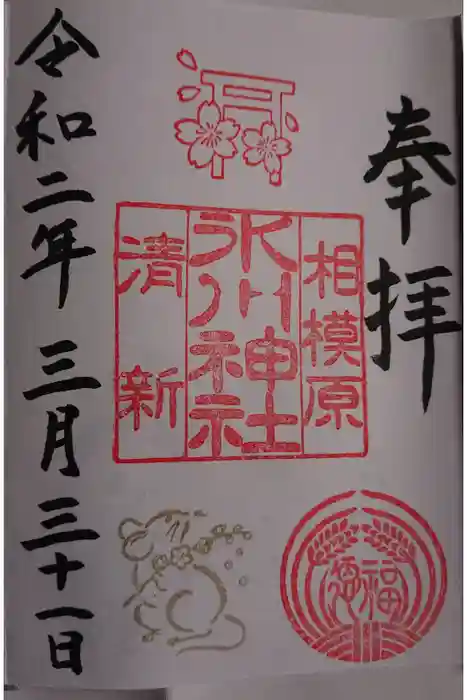 奉拝
相模原
氷川神社
清新
福徳
令和二年 三月三十一日